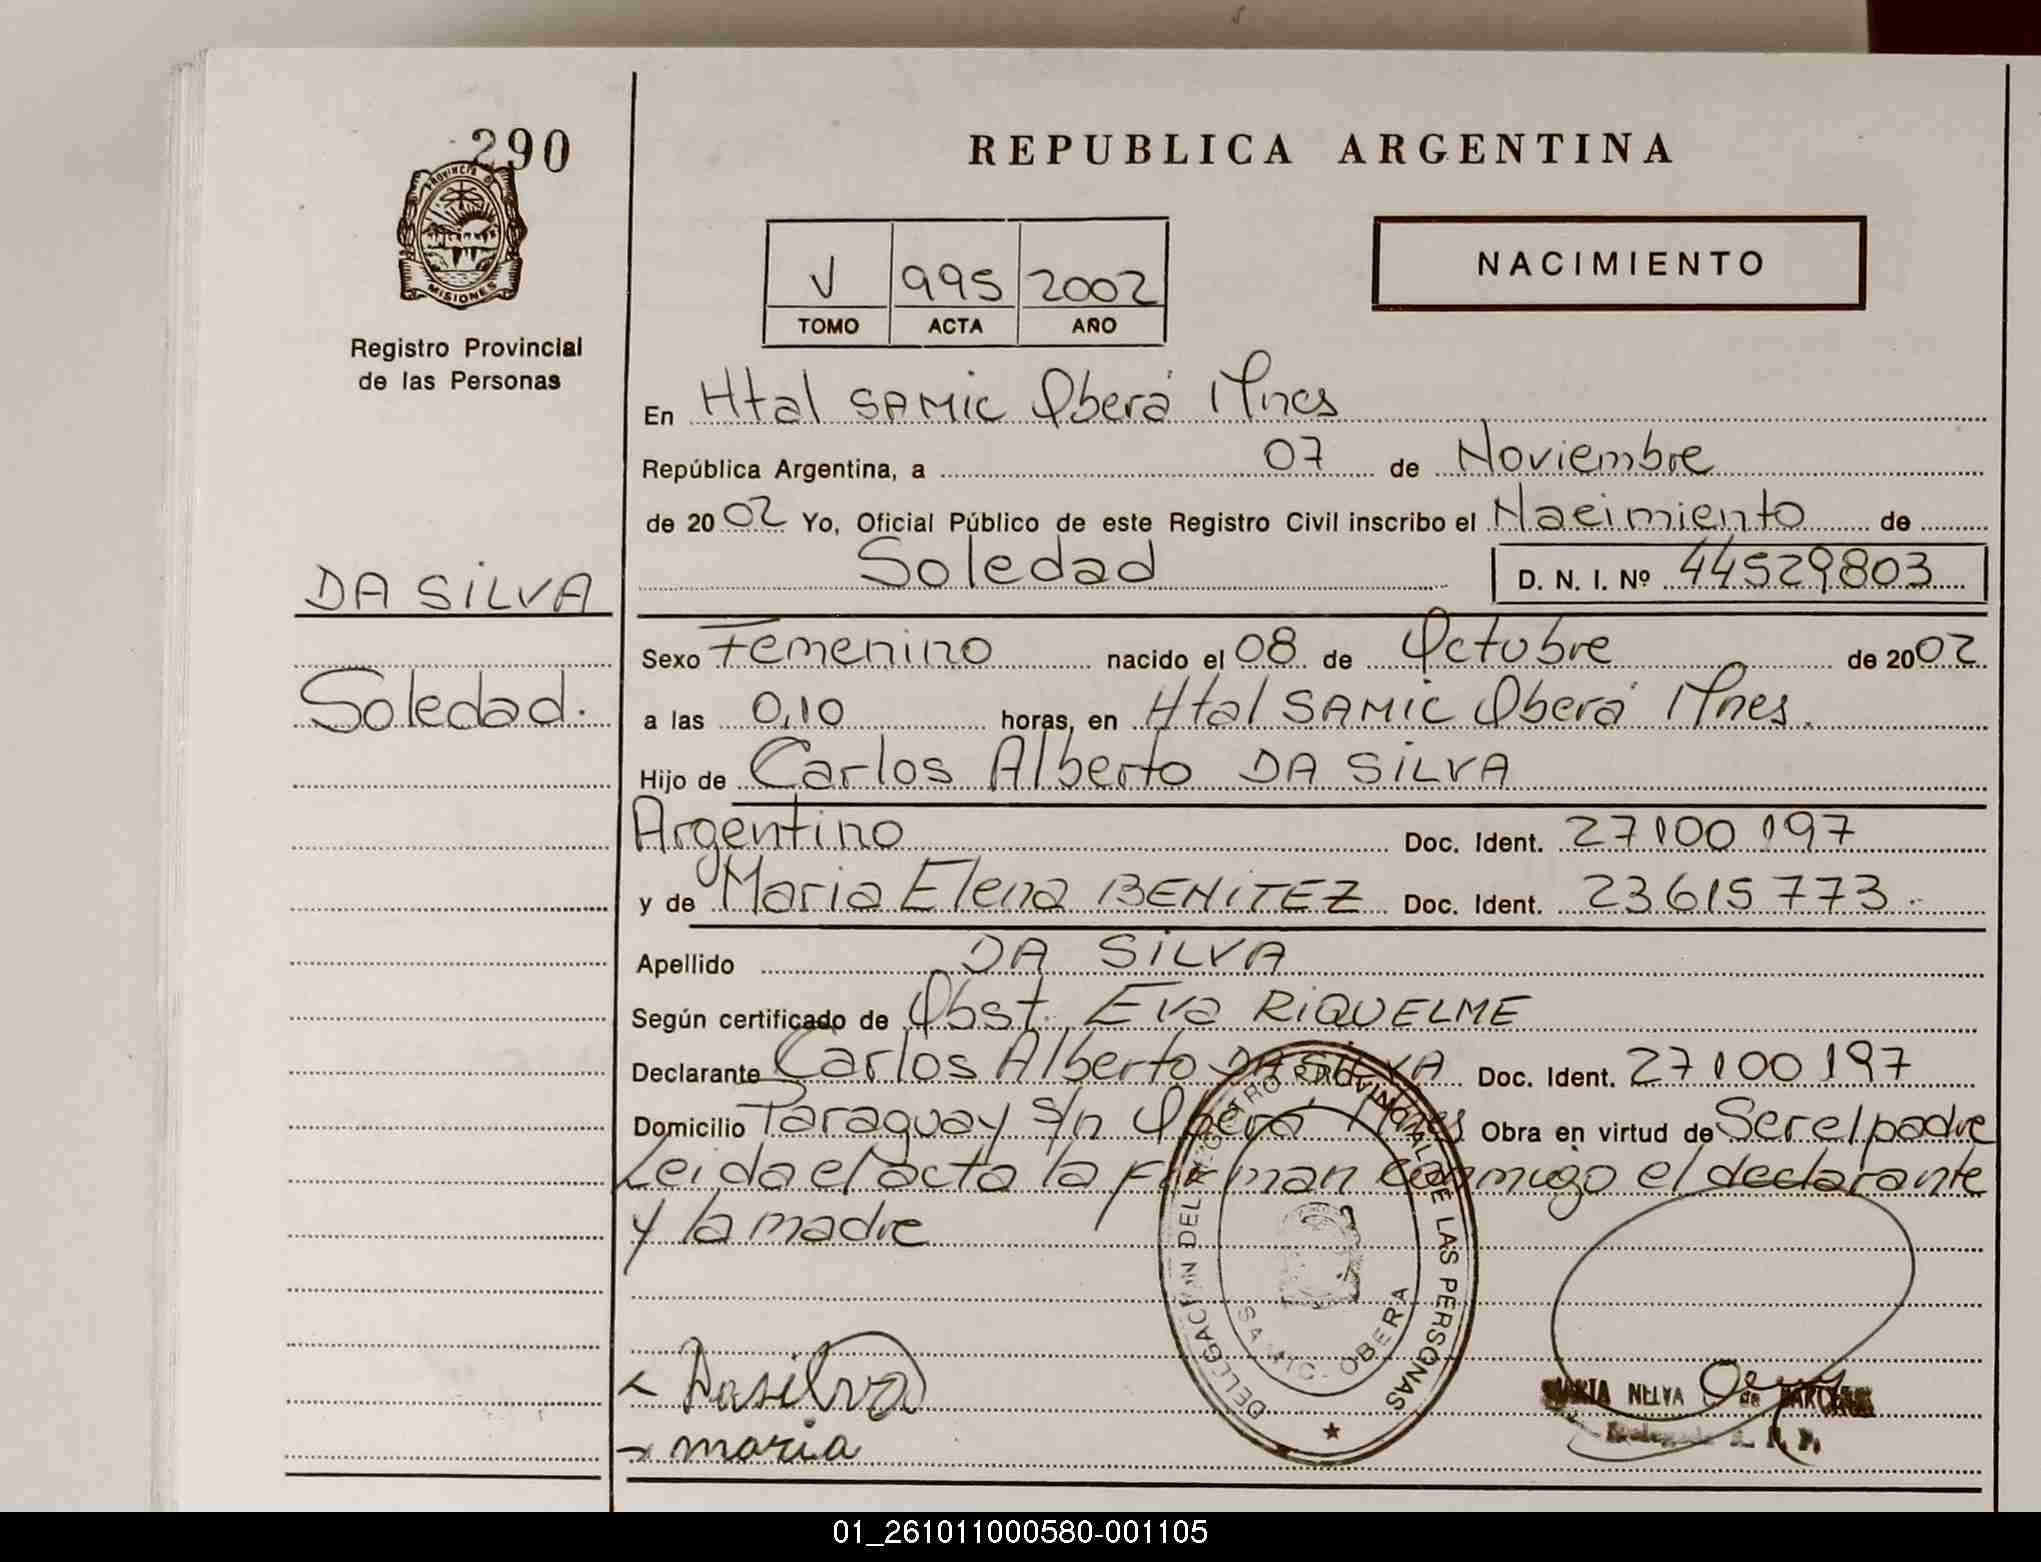 290
PROVINCIA DE
MISIONES
Registro Provincial
de las Personas
DA SILVA
Soledad.
REPUBLICA ARGENTINA
NACIMIENTO
V 995 2002
TOMO ACTA AÑO
En Htal SAMIC Oberá Mnes
República Argentina, a 07 de Noviembre
de 2002 Yo, Oficial Público de este Registro Civil inscribo el Nacimiento de
Soledad D. N. I. Nº 44529803
Sexo Femenino nacido el 08 de Octubre de 2002
a las 0,10 horas, en Htal SAMIC Oberá Mnes.
Hijo de Carlos Alberto DA SILVA
Argentino Doc. Ident. 27100197
y de Maria Elena BENITEZ Doc. Ident. 23615773.
Apellido DA SILVA
Según certificado de Obst. Eva RIQUELME
Declarante Carlos Alberto DA SILVA Doc. Ident. 27100197
Domicilio Paraguay s/n Oberá Mnes Obra en virtud de Ser el padre
Leida el acta la firman conmigo el declarante
y la madre
DELEGACION DEL REGISTRO PROVINCIAL DE LAS PERSONAS
SAMIC - OBERA
Dasilva
maria
MARIA NELVA de
01_261011000580-001105